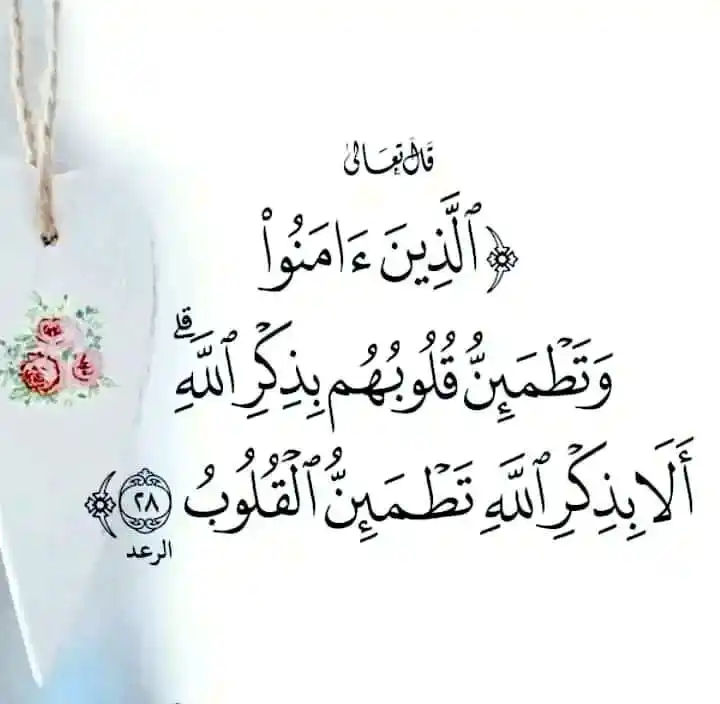 قَالَ تَعَالَىٰ
﴿ٱلَّذِينَ ءَامَنُوا۟
وَتَطْمَئِنُّ قُلُوبُهُم بِذِكْرِ ٱللَّهِۗ
أَلَا بِذِكْرِ ٱللَّهِ تَطْمَئِنُّ ٱلْقُلُوبُ ٢٨﴾
الرعد